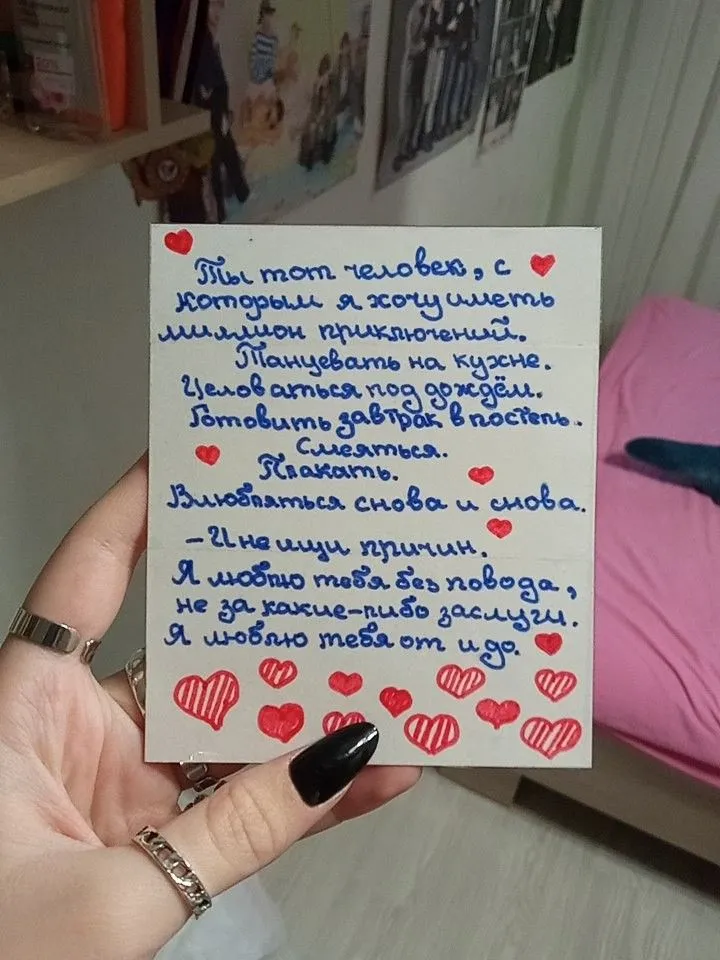 Ты тот человек, с
которым я хочу иметь
миллион приключений.
Танцевать на кухне.
Целоваться под дождём.
Готовить завтрак в постель.
Смеяться.
Плакать.
Влюбляться снова и снова.
- И не ищи причин.
Я люблю тебя без повода,
не за какие-либо заслуги.
Я люблю тебя от и до.